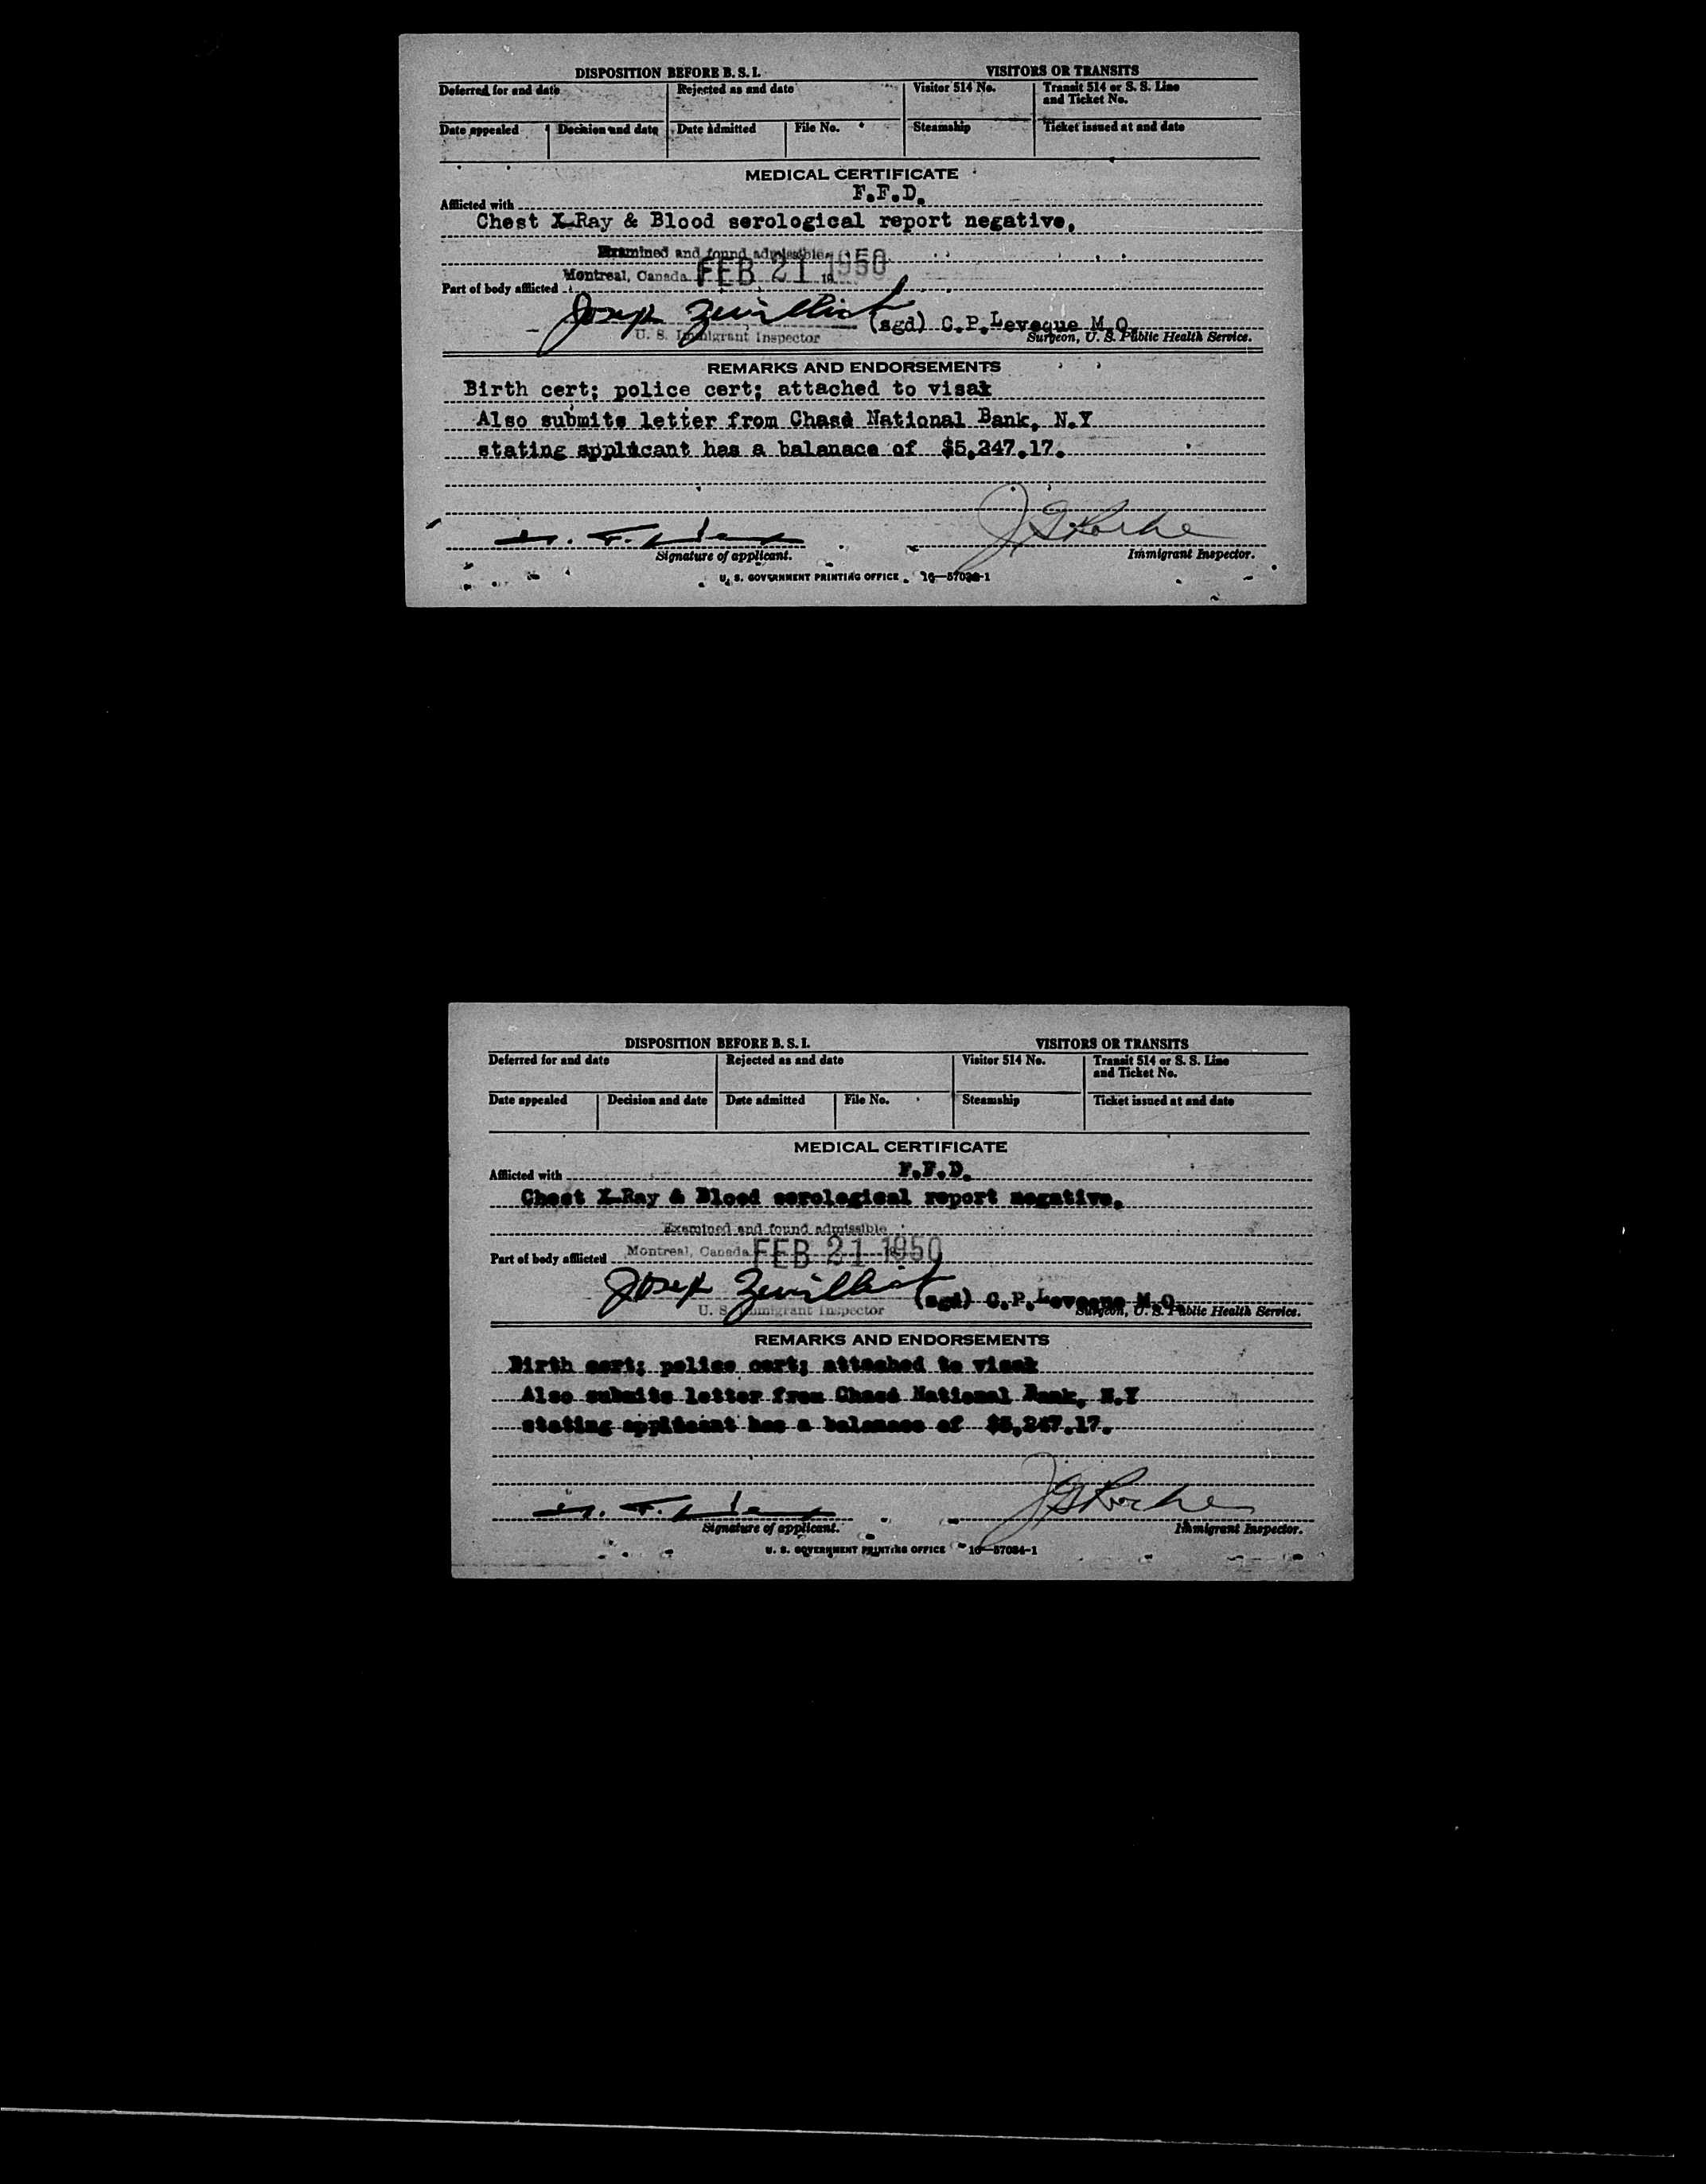 DISPOSITION BEFORE B. S. I. VISITORS OR TRANSITS
Deferred for and date Rejected as and date Visitor 514 No. Transit 514 or S. S. Line
and Ticket No.
Date appealed Decision and date Date admitted File No. Steamship Ticket issued at and date
MEDICAL CERTIFICATE
F.F.D.
Afflicted with
Chest X-Ray & Blood serological report negative.
Examined and found admissible
Montreal, Canada FEB 21 1950
Part of body afflicted
Joseph
(sgd) C.P.Leveque M.O.
U. S. Immigrant Inspector Surgeon, U. S. Public Health Service.
REMARKS AND ENDORSEMENTS
Birth cert; police cert; attached to visax
Also submits letter from Chase National Bank, N.Y
stating applicant has a balanace of $5,247.17.
J G Roche
Signature of applicant. Immigrant Inspector.
U. S. GOVERNMENT PRINTING OFFICE 16—57034-1
DISPOSITION BEFORE B. S. I. VISITORS OR TRANSITS
Deferred for and date Rejected as and date Visitor 514 No. Transit 514 or S. S. Line
and Ticket No.
Date appealed Decision and date Date admitted File No. Steamship Ticket issued at and date
MEDICAL CERTIFICATE
Afflicted with F.F.D.
Chest X-Ray & Blood serological report negative.
Examined and found admissible
Part of body afflicted Montreal, Canada FEB 21 1950
Joseph
(sgd) C.P.Leveque M.O.
U. S. Immigrant Inspector Surgeon, U. S. Public Health Service.
REMARKS AND ENDORSEMENTS
Birth cert; police cert; attached to visax
Also submits letter from Chase National Bank, N.Y
stating applicant has a balanace of $5,247.17.
J G Roche
Signature of applicant. Immigrant Inspector.
U. S. GOVERNMENT PRINTING OFFICE 16—57034-1